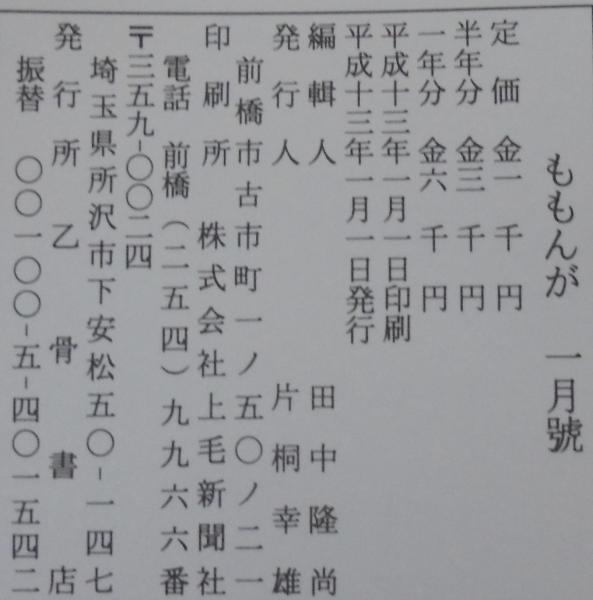 ももんが 一月號
定価 金一千円
半年分 金三千円
一年分 金六千円
平成十三年一月一日印刷
平成十三年一月一日発行
編輯人 田中隆尚
発行人 片桐幸雄
前橋市古市町一ノ五〇ノ二一
印刷所 株式会社上毛新聞社
電話 前橋(二五四)九九六六番
〒三五九-〇〇二四
埼玉県所沢市下安松五〇-一四七
発行所 乙骨書店
振替 〇〇一〇〇-五-四〇一五四二